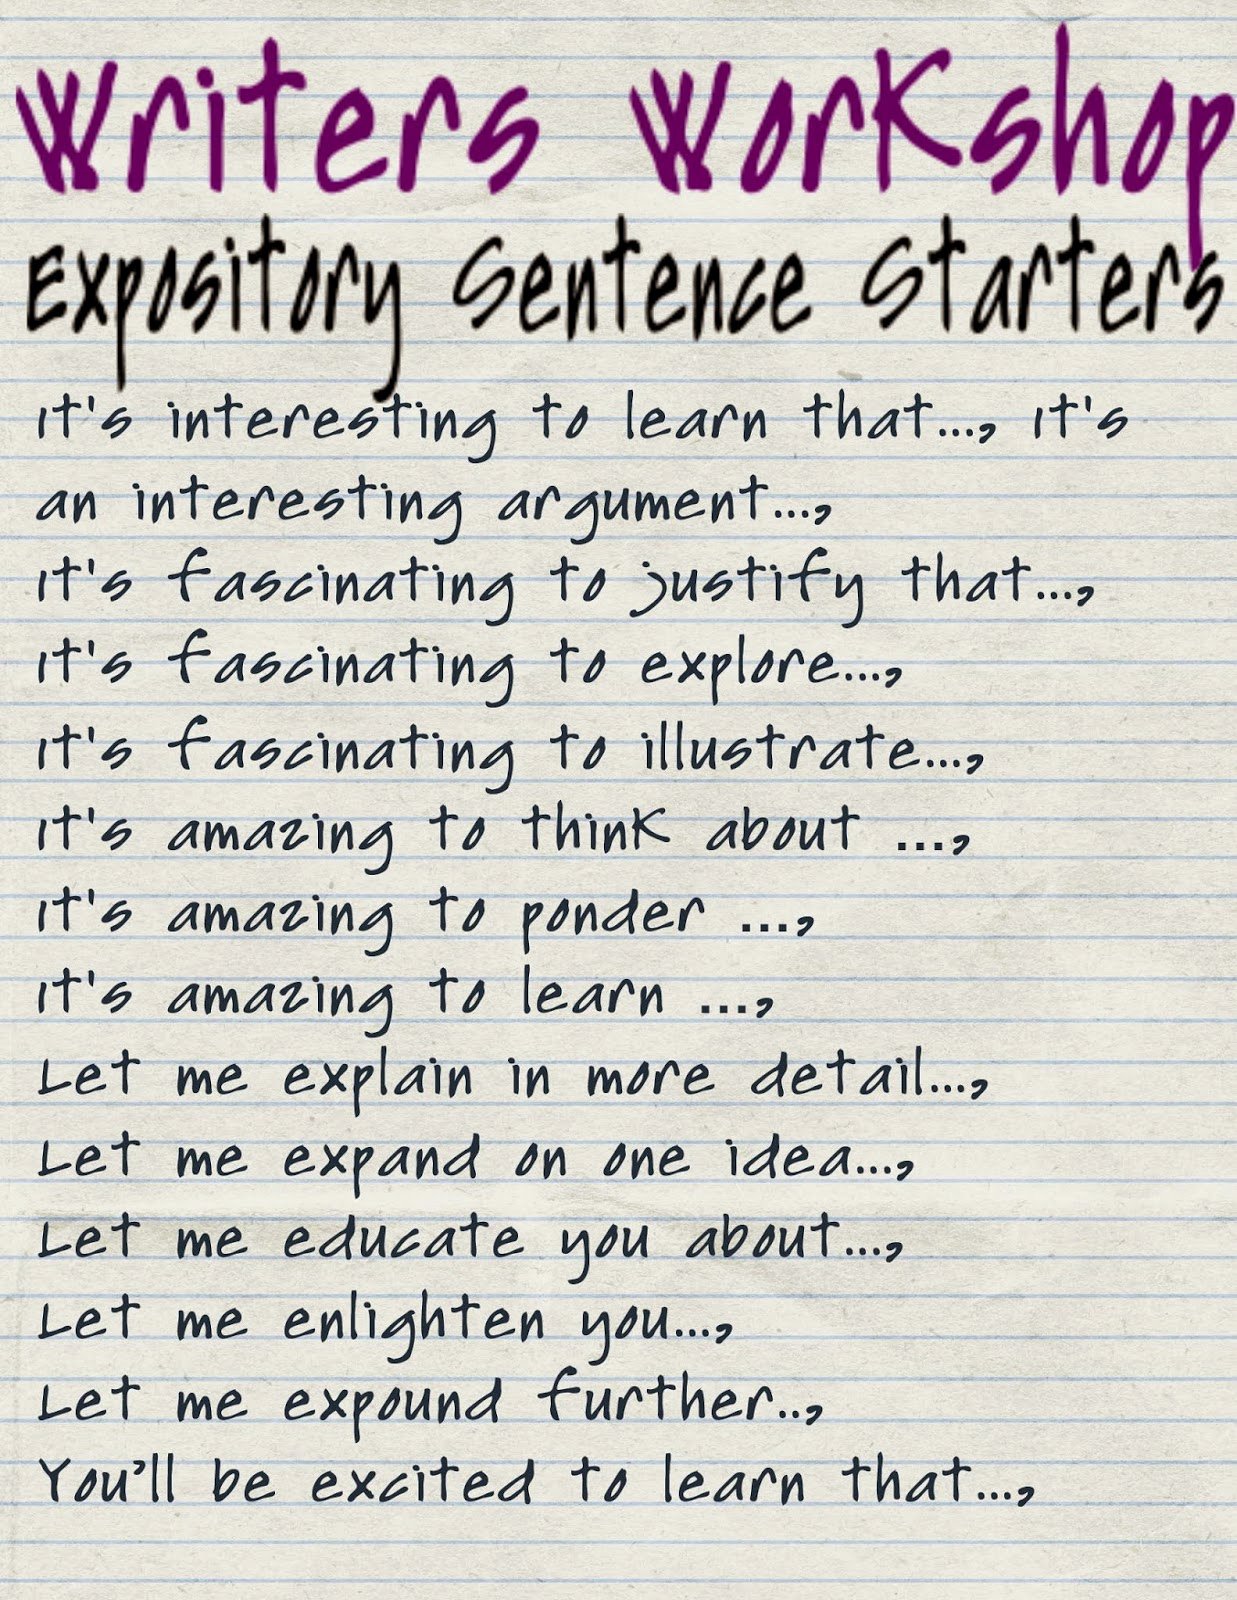 Writers Workshop
Expository Sentence Starters
It's interesting to learn that..., It's
an interesting argument...,
It's fascinating to justify that...,
It's fascinating to explore...,
It's fascinating to illustrate...,
It's amazing to think about ...,
It's amazing to ponder ...,
It's amazing to learn ...,
Let me explain in more detail...,
Let me expand on one idea...,
Let me educate you about...,
Let me enlighten you...,
Let me expound further..,
You'll be excited to learn that...,